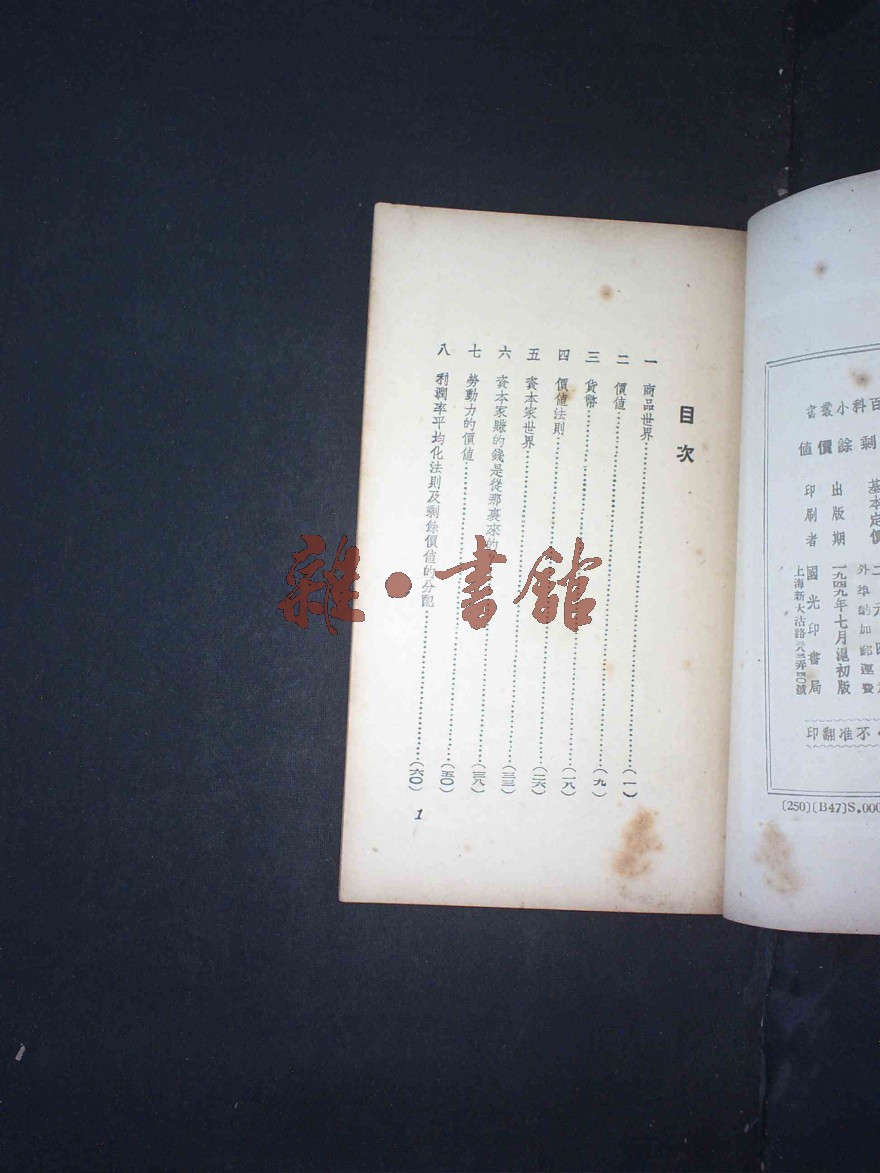 百科小叢書
剩餘價值
基本定價 二元四
外埠酌加郵運費
出版期 一九四九年七月滬初版
印刷者 國光印書局
不准翻印
[250](B47)S.000
目次
一 商品世界……(一)
二 價值……(九)
三 貨幣……(一八)
四 價值法則……(二六)
五 資本家世界……(三三)
六 資本家賺的錢是從那裏來的……(三八)
七 勞動力的價值……(五〇)
八 利潤率平均化法則及剩餘價值的分配……(六〇)
1
雜·書館